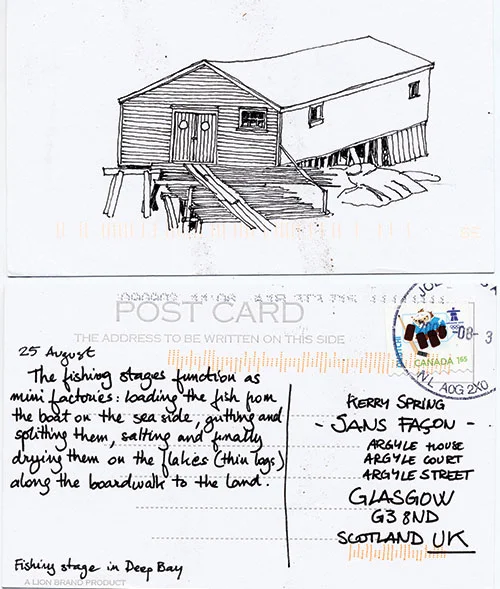 POST CARD
THE ADDRESS TO BE WRITTEN ON THIS SIDE
CANADA 165
-08- 3
NL A0G 2X0
25 August
The fishing stages function as
mini factories: loading the fish from
the boat on the sea side, gutting and
splitting them, salting and finally
drying them on the flakes (thin logs)
along the boardwalk to the land.
Fishing stage in Deep Bay
A LION BRAND PRODUCT
KERRY SPRING
- SANS FAÇON -
ARGYLE HOUSE
ARGYLE COURT
ARGYLE STREET
GLASGOW
G3 8ND
SCOTLAND UK